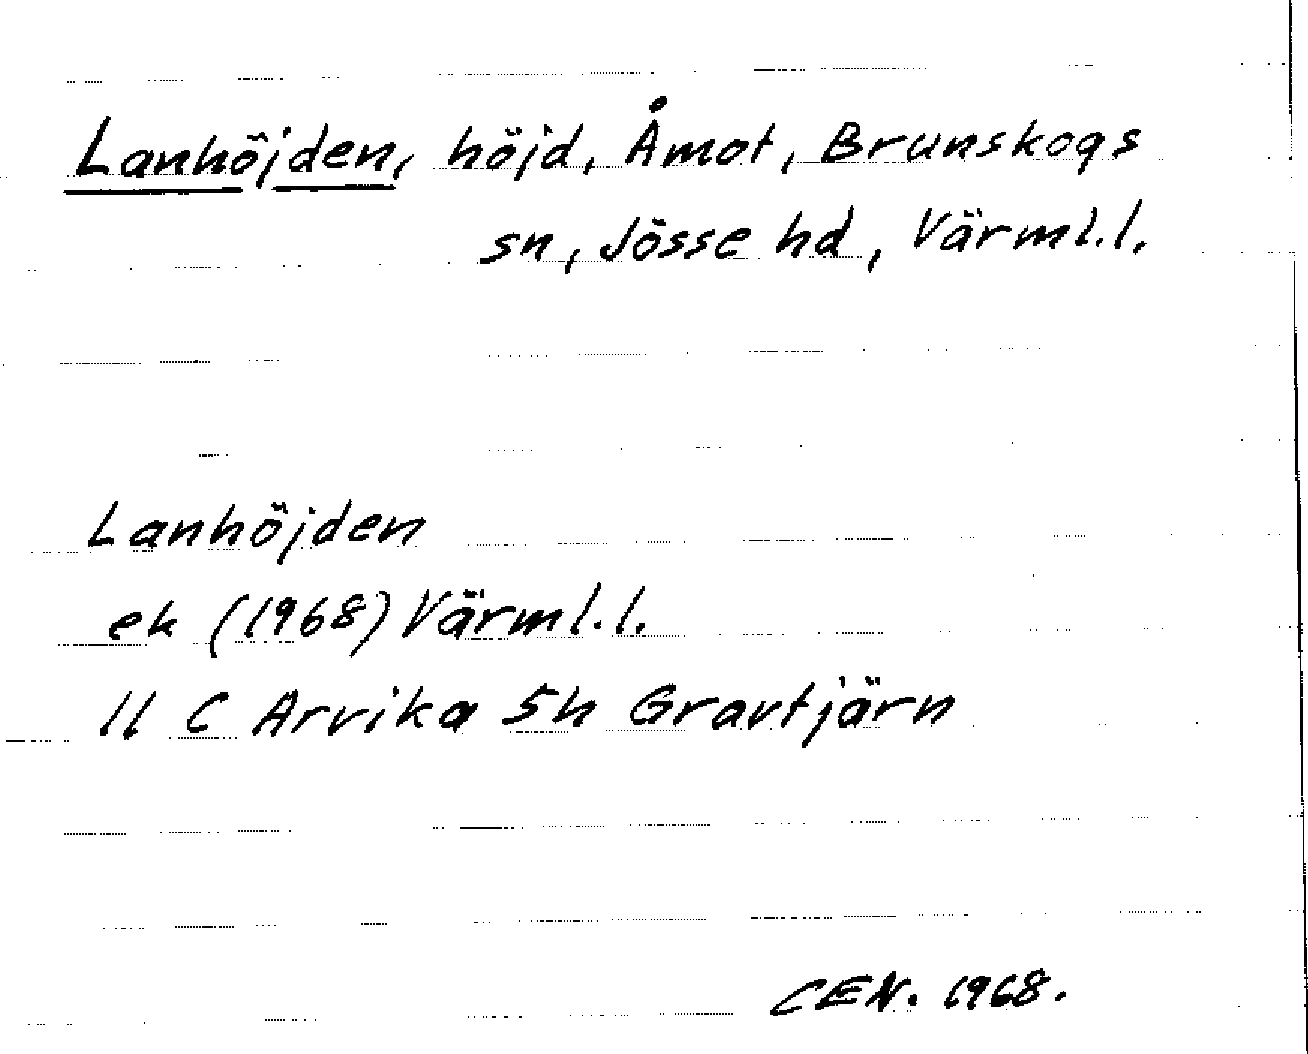 Lanhöjden, höjd, Åmot, Brunskogs
sn, Jösse hd, Värml.l.
Lanhöjden
ek (1968) Värml.l.
11 C Arvika 5h Gravtjärn
CEN. 1968.